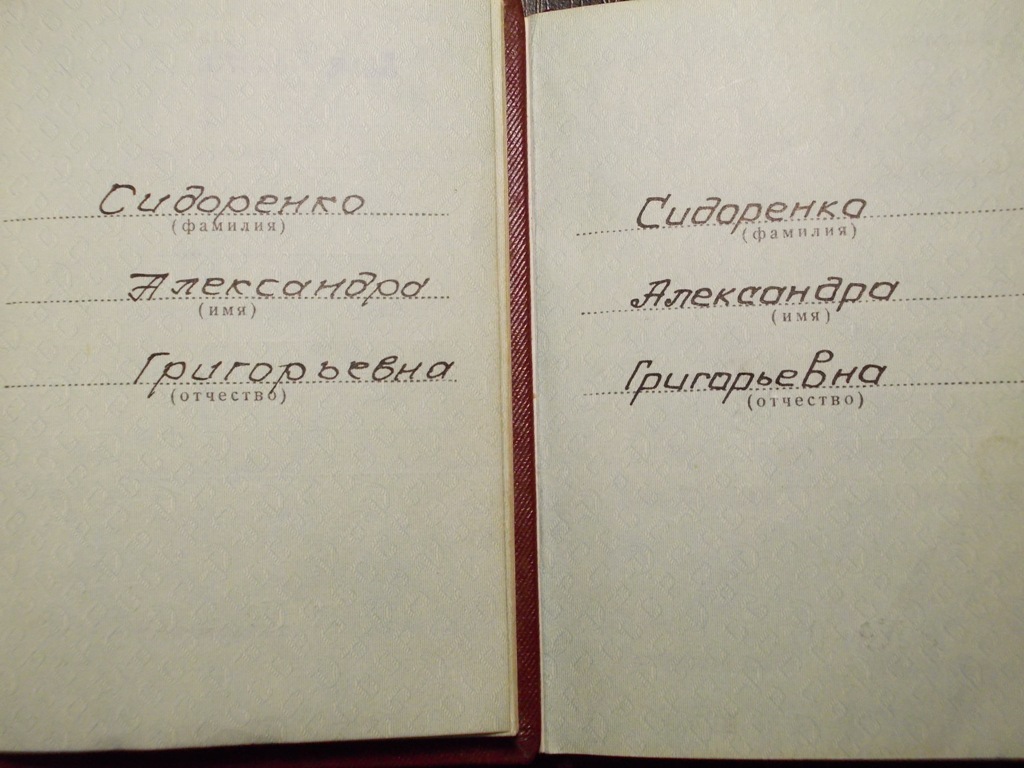 Сидоренко
(фамилия)
Александра
(имя)
Григорьевна
(отчество)
Сидоренко
(фамилия)
Александра
(имя)
Григорьевна
(отчество)